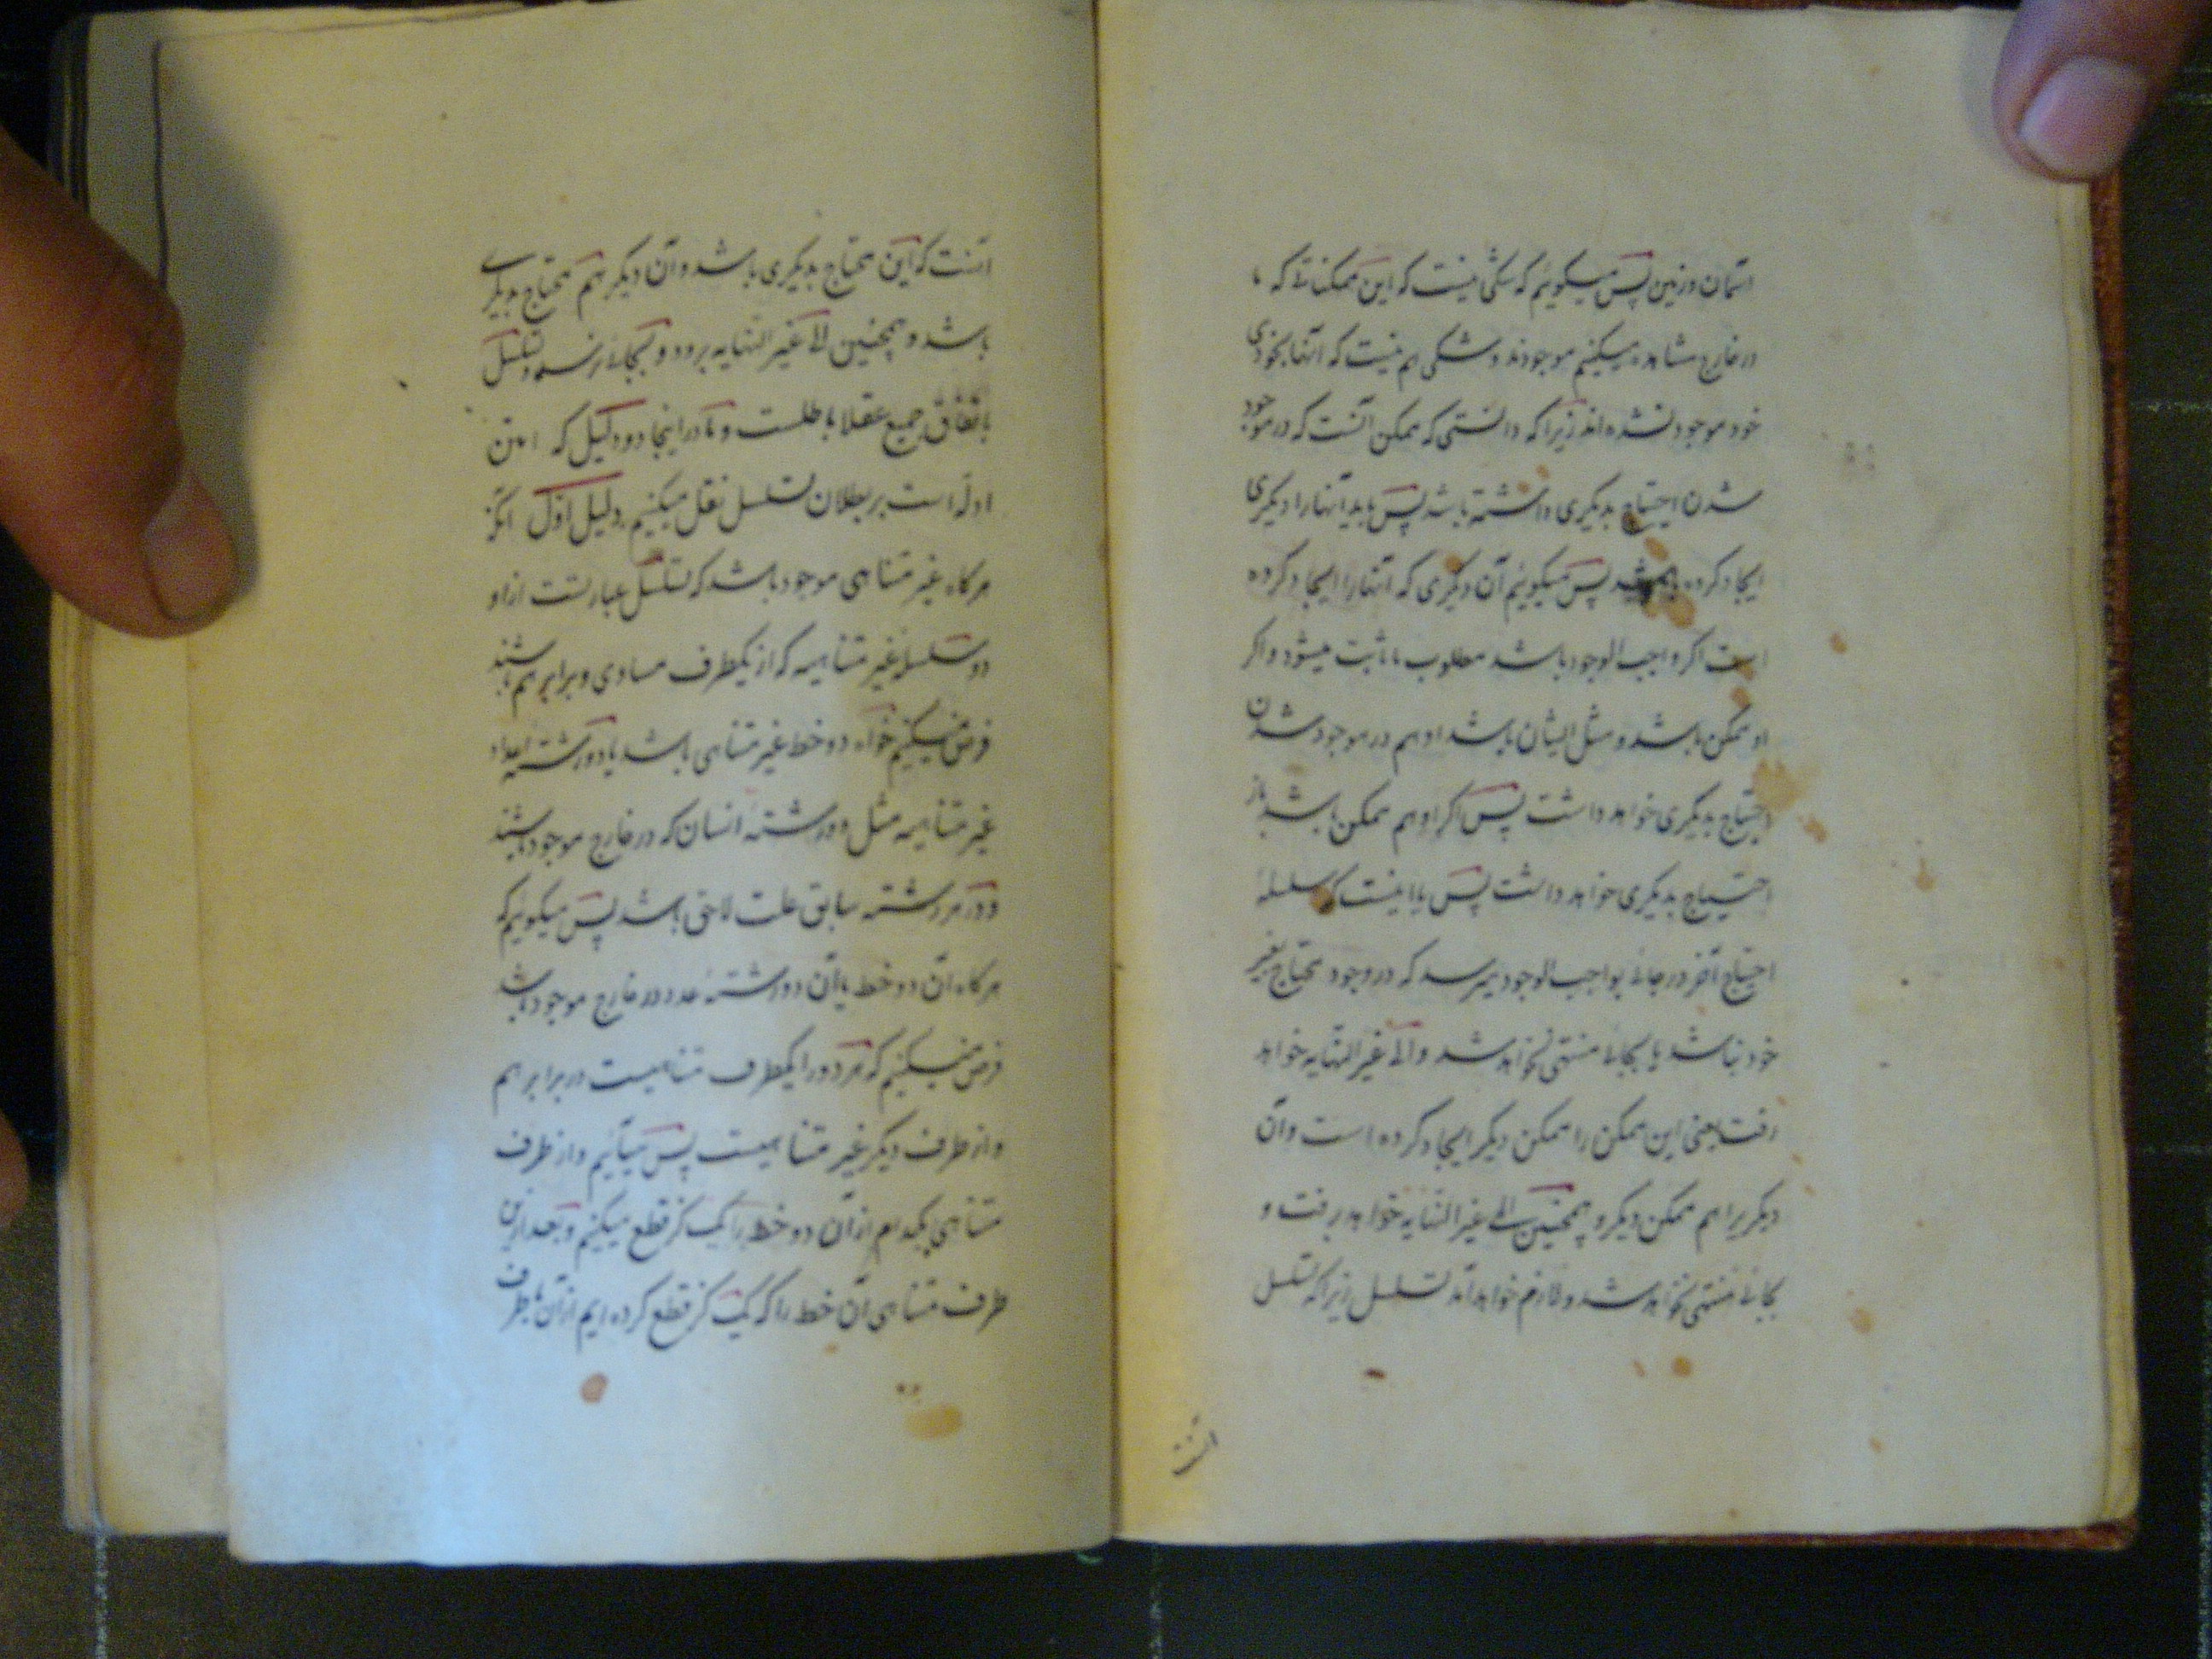 آسمان و زمین پس میکوئیم که شکی نیست که این ممکناتی که ما
در خارج مشاهده میکنیم موجودند و شکی هم نیست که آنها بخودی
خود موجود نشده اند زیرا که دانستی که ممکن آنست که در موجود
شدن احتیاج بدیکری داشته باشد پس باید آنها را دیکری
ایجاد کرده باشد پس میکوئیم آن دیکری که آنها را ایجاد کرده
است اکر واجب الوجود باشد مطلوب ما ثابت میشود و اکر
او ممکن باشد و مثل ایشان باشد او هم در موجود شدن
احتیاج بدیکری خواهد داشت پس اکر او هم ممکن باشد باز
احتیاج بدیکری خواهد داشت پس یا اینست که سلسلهٔ
احتیاج آخر در جائی بواجب الوجود میرسد که در وجود محتاج بغیر
خود نباشد یا بجائی منتهی نخواهد شد و الی غیر النهایه خواهد
رفت یعنی این ممکن را ممکن دیکر ایجاد کرده است و آن
دیکر را هم ممکن دیکر و همچنین الی غیر النهایه خواهد رفت و
بجائی منتهی نخواهد شد و لازم خواهد آمد تسلسل زیرا که تسلسل
آنست
آنست که این محتاج بدیکری باشد و آن دیکر هم محتاج بدیکری
باشد و همچنین الی غیر النهایه برود و بجائی نرسد و تسلسل
باتفاق جمیع عقلا باطلست و ما در اینجا دو دلیل که امتن
ادله است بر بطلان تسلسل نقل میکنیم دلیل اول آنکه
هرکاه غیر متناهی موجود باشد که تسلسل عبارتست از او
دو سلسلهٔ غیر متناهیه که از یکطرف مساوی و برابر هم باشند
فرض میکنیم خواه دو خط غیر متناهی باشد یا دو رشتهٔ اعداد
غیر متناهیه مثل دو رشتهٔ انسان که در خارج موجود باشند
و در هر رشته سابق علت لاحق باشد پس میکوئیم که
هرکاه آن دو خط یا آن دو رشتهٔ عدد در خارج موجود باشد
فرض میکنیم که هر دو را یکطرف متناهیست در برابر هم
و از طرف دیکر غیر متناهیست پس میآئیم و از طرف
متناهی یکدام از آن دو خط را یک کز قطع میکنیم و بعد از این
طرف متناهی آن خط را که یک کز قطع کرده ایم از آن طرف